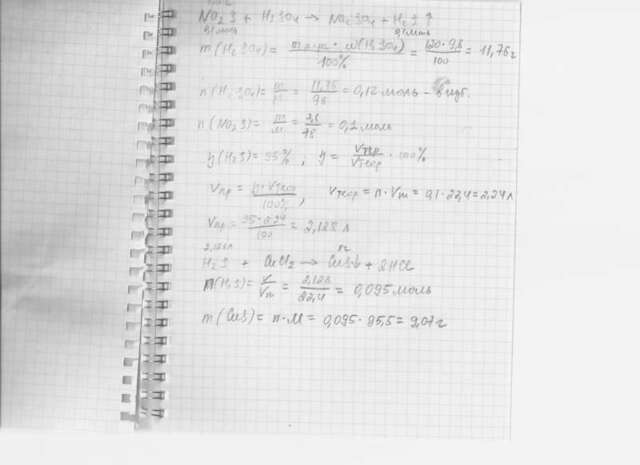 Na₂S + H₂SO₄ → Na₂SO₄ + H₂S ↑
0,1 моль 0,1 моль
m(H₂SO₄) = m р-ра · ω(H₂SO₄) / 100% = 120 · 9,8 / 100 = 11,76 г
n(H₂SO₄) = m/M = 11,76/98 = 0,12 моль – в изб.
n(Na₂S) = m/M = /78 = 0,1 моль
η(H₂S) = 95%, η = Vпр/Vтеор · 100%
Vпр = η · Vтеор / 100%, Vтеор = n · Vm = 0,1 · 22,4 = 2,24 л
Vпр = 95 · 2,24 / 100 = 2,128 л
2,128 л
H₂S + CuCl₂ → CuS↓ + 2HCl
n(H₂S) = V/Vm = 2,128/22,4 = 0,095 моль
m(CuS) = n · M = 0,095 · 95,5 = 9,07 г